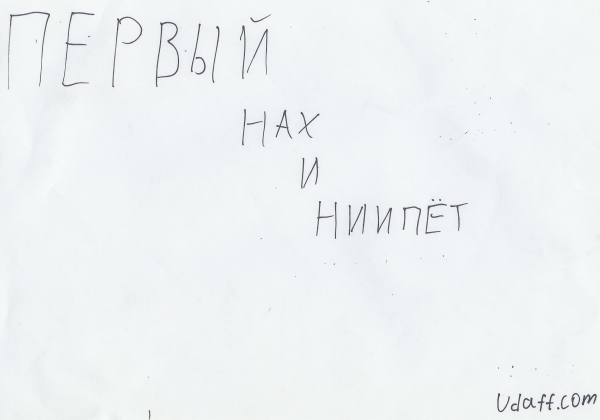 ПЕРВЫЙ
НАХ
И
НИИПЁТ
Udaff.com